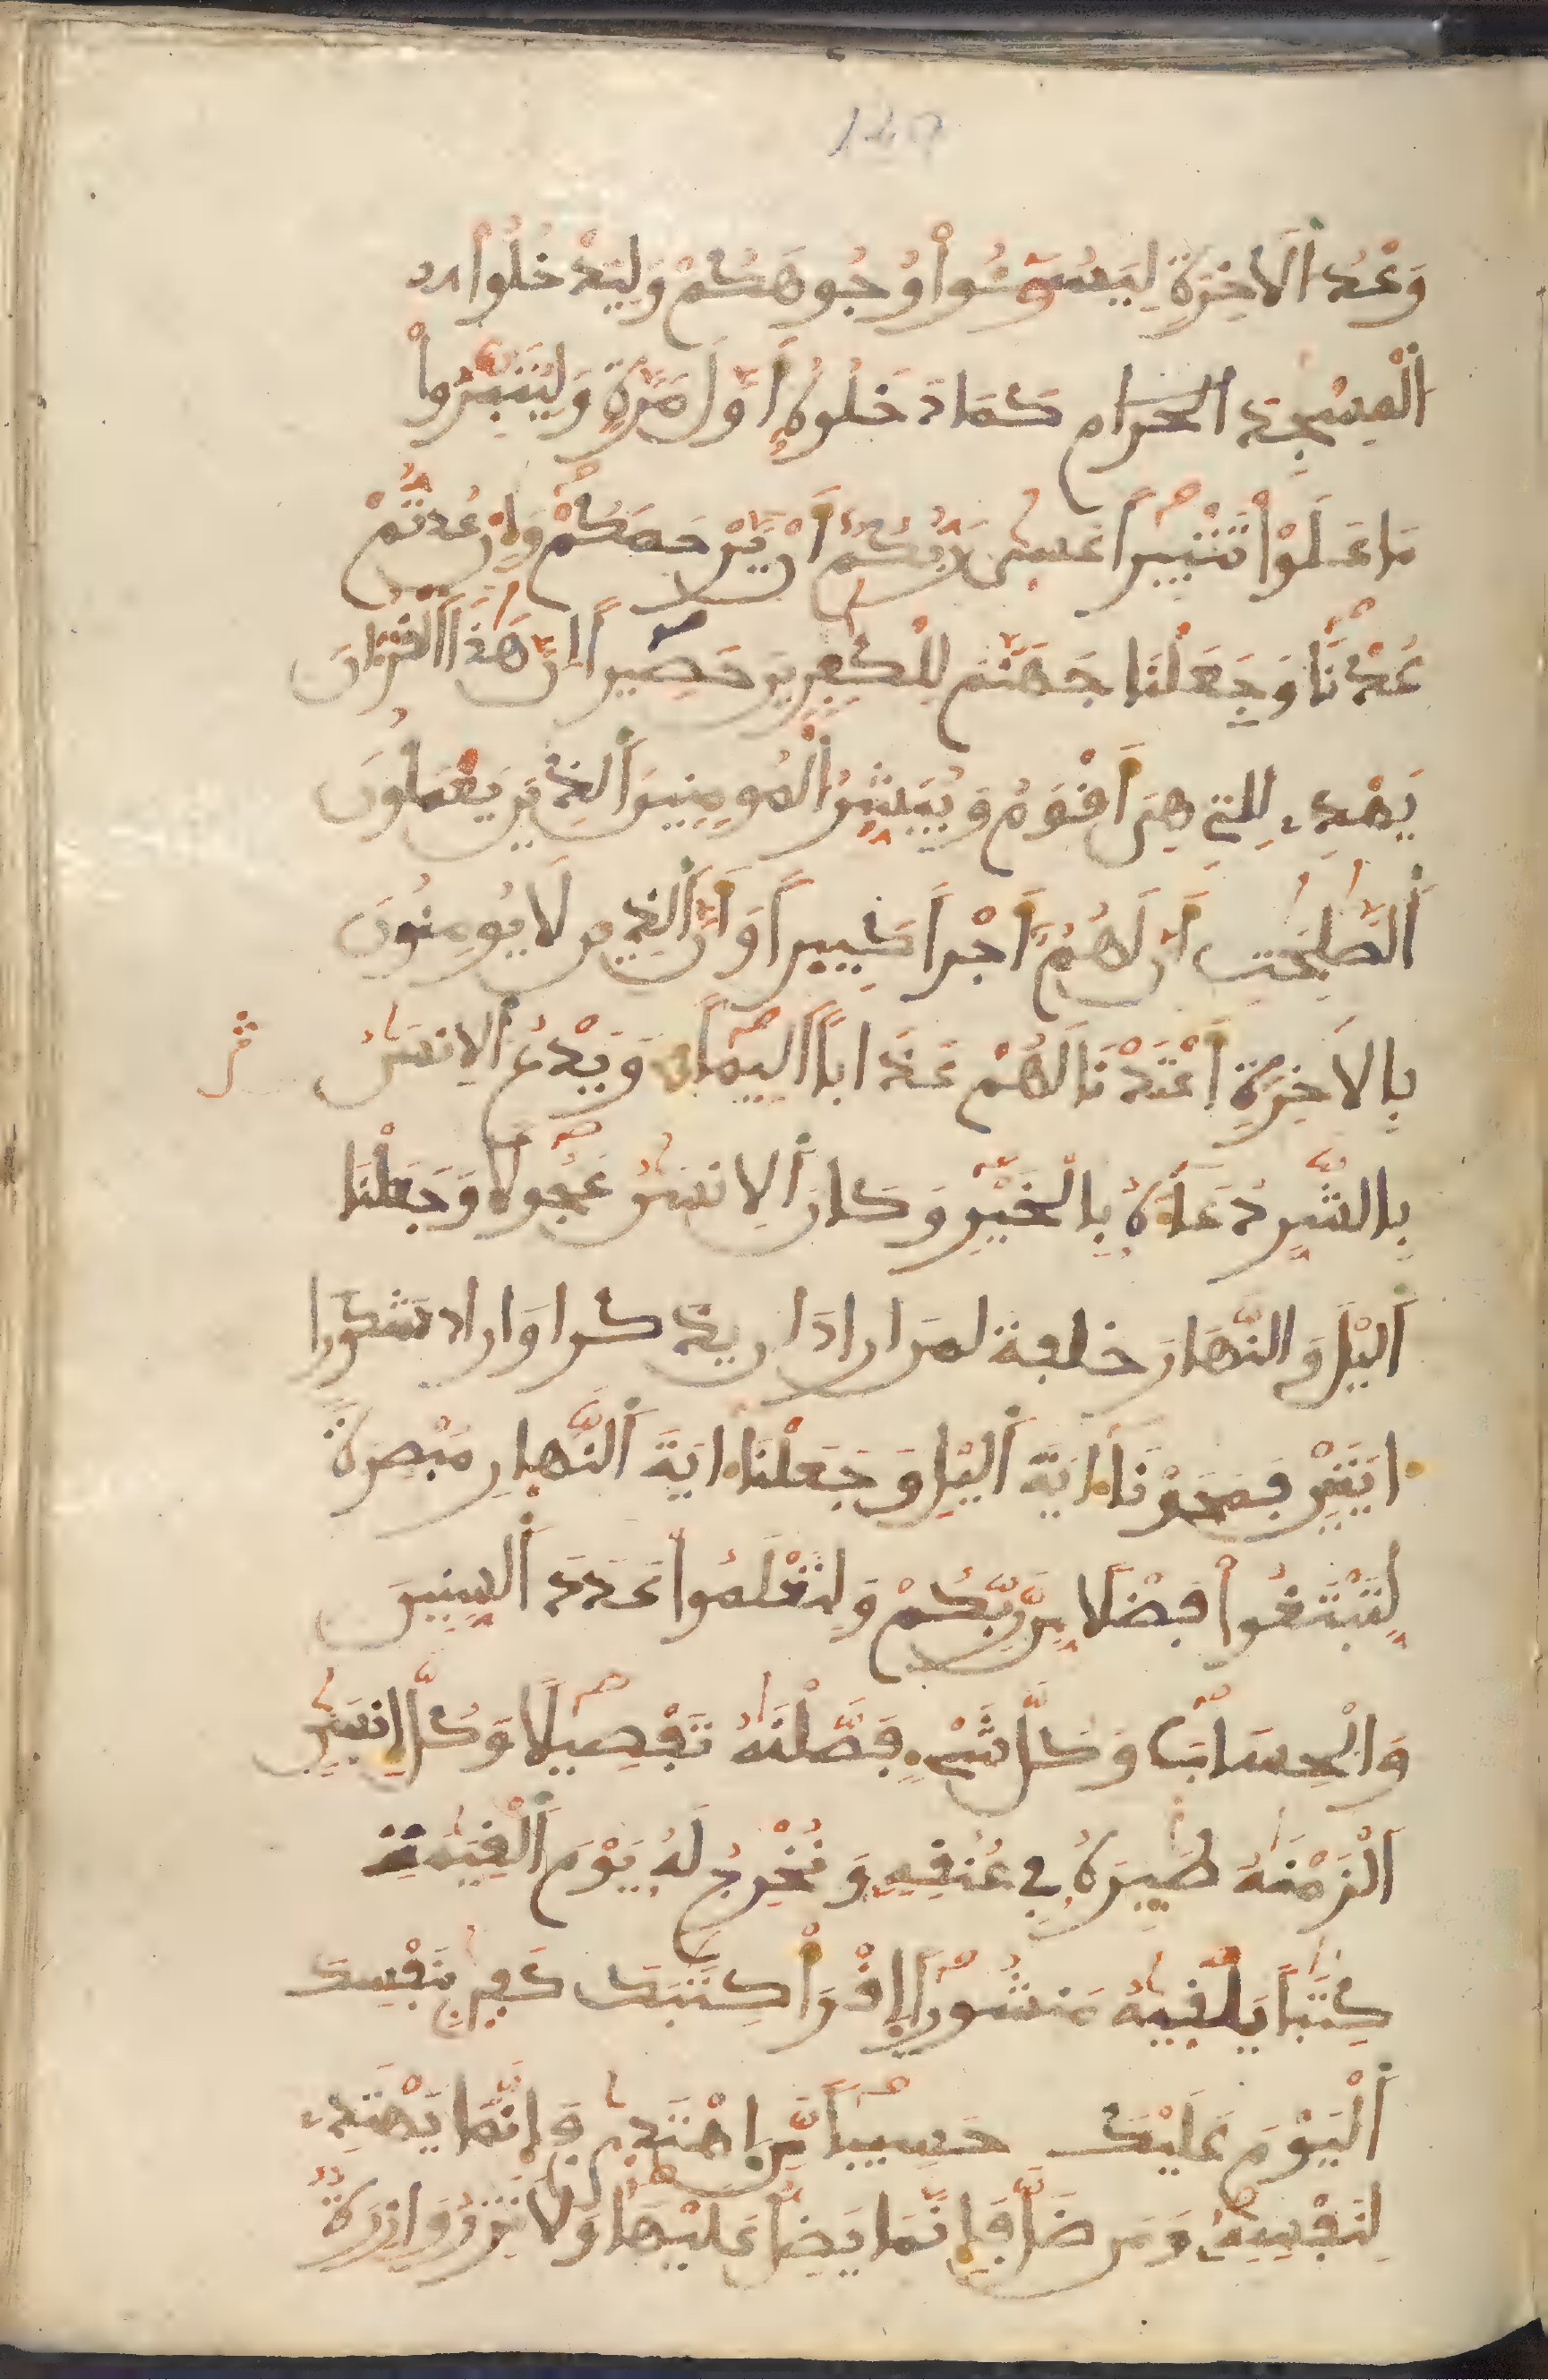 129
وَعْدُ اَ۬لَاخِرَةِ لِيَسُـُٔواْ وُجُوهَكُمْ وَلِيَدْخُلُوا ا
اَ۬لْمَسْجِدَ الحرام كَمَا دَخَلُوهُ أَوَّلَ مَرَّةٍ وَلِيُتَبِّرُواْ
مَا عَلَوْاْ تَتْبِيراً عَسىٰ رَبُّكُمُ أَنْ يَّرْحَمَكُمْ وَإِنْ عُدتُّمْ
عُدْنَا وَجَعَلْنَا جَهَنَّمَ لِلْكٰفِرِينَ حَصِيراً اِنَّ هَٰذَا اَ۬لْقُرْءَانَ
يَهْدِے لِلتِے هِيَ أَقْوَمُ وَيُبَشِّرُ اُ۬لْمُومِنِينَ اَ۬لذِينَ يَعْمَلُونَ
اَ۬لصَّٰلِحَٰتِ أَنَّ لَهُمُ أَجْراً كَبِيراً وَأَنَّ اَ۬لذِينَ لَا يُومِنُونَ
بِالَاخِرَةِ أَعْتَدْنَا لَهُمْ عَذَاباً اَلِيماً وَيَدْعُ اُ۬لِانسَٰنُ
بِالشَّرِّ دُعَآءَهُۥ بِالْخَيْرِ وَكَانَ اَ۬لِانسَٰنُ عَجُولًا وَجَعَلْنَا
اَ۬ليْلَ وَالنَّهَارَ خلفة لمن اراد ان يذكرا وا راد شكورا
ءَايَتَيْنِ فَمَحَوْنَا ءَايَةَ اَ۬ليْلِ وَجَعَلْنَا ءَايَةَ اَ۬لنَّهارِ مُبْصِرَةً
لِّتَبْتَغُواْ فَضْلًا مِّن رَّبِّكُمْ وَلِتَعْلَمُواْ عَدَدَ اَ۬لسِّنِينَ
وَالْحِسَابَ وَكُلَّ شَےْءٍ فَصَّلْنَٰهُ تَفْصِيلًا وَكُلَّ إِنسَٰنٍ
اَلْزَمْنَٰهُ طَٰٓئِرَهُۥ فِے عُنُقِهِۦ وَنُخْرِجُ لَهُۥ يَوْمَ اَ۬لْقِيَٰمَةِ
كِتَٰباً يَلْقيٰهُ مَنشُوراً اِقْرَأْ كِتَٰبَكَ كَفيٰ بِنَفْسِكَ
اَ۬لْيَوْمَ عَلَيْكَ حَسِيباً مَّنِ اِهْتَديٰ فَإِنَّمَا يَهْتَدِے
لِنَفْسِهِۦ وَمَن ضَلَّ فَإِنَّمَا يَضِلُّ عَلَيْهَا وَلَا تَزِرُ وَازِرَةٌ